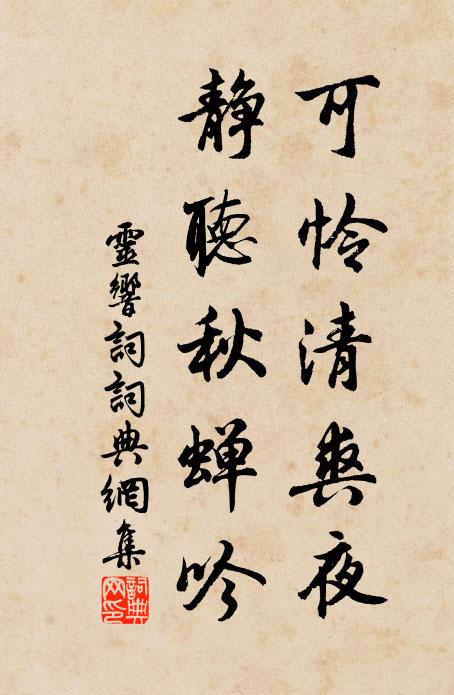 可怜清爽夜
静聽秋蝉吟
靈響詞詞典網集
詞典网印